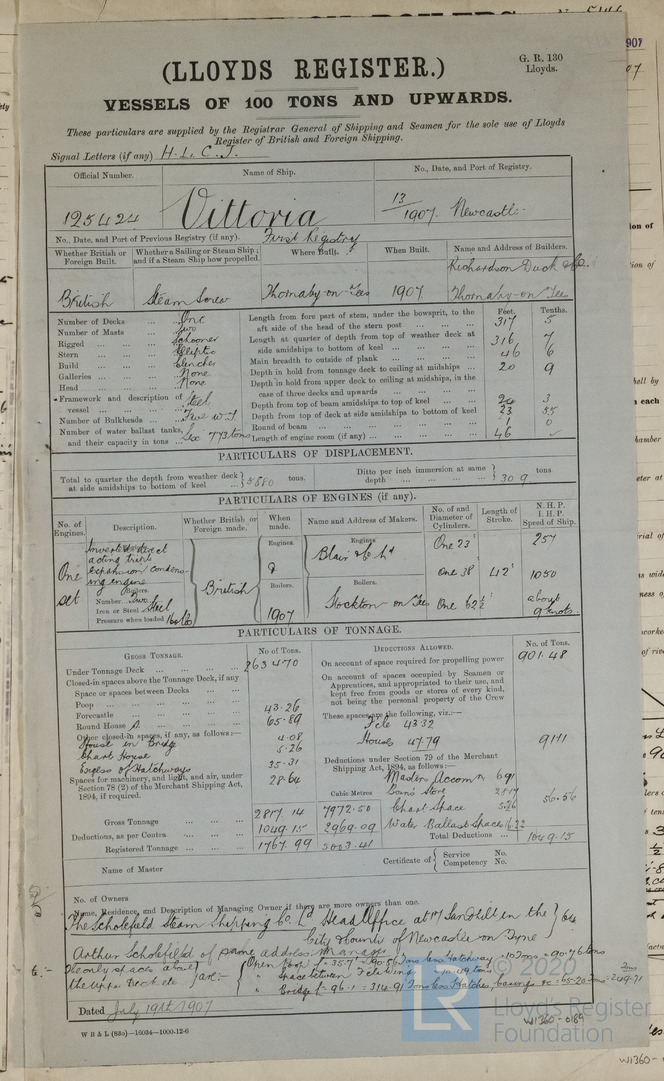 (LLOYDS REGISTER.)
G. R. 130
Lloyds.
VESSELS OF 100 TONS AND UPWARDS.
These particulars are supplied by the Registrar General of Shipping and Seamen for the sole use of Lloyds
Register of British and Foreign Shipping.
Signal Letters (if any) H. L. C. J.
Official Number. Name of Ship. No., Date, and Port of Registry.
125424 Vittoria 13/1907 Newcastle
No., Date, and Port of Previous Registry (if any). First Registry
Whether British or Foreign Built. Whether a Sailing or Steam Ship and if a Steam Ship how propelled. Where Built. When Built. Name and Address of Builders.
British Steam Screw Thornaby-on-Tees 1907 Richardson Duck & Co. Thornaby-on-Tees
Feet. Tenths.
Number of Decks One
Number of Masts Two
Rigged Schooner
Stern Eliptic
Build Clencher
Galleries None
Head None
Framework and description of vessel Steel
Number of Bulkheads Five W.T
Number of water ballast tanks, and their capacity in tons Six 773 tons
Length from fore part of stem, under the bowsprit, to the aft side of the head of the stern post 317 5
Length at quarter of depth from top of weather deck at side amidships to bottom of keel 316 7
Main breadth to outside of plank 46 6
Depth in hold from tonnage deck to ceiling at midships 20 9
Depth in hold from upper deck to ceiling at midships, in the case of three decks and upwards
Depth from top of beam amidships to top of keel 3
Depth from top of deck at side amidships to bottom of keel 23 55
Round of beam 1 0
Length of engine room (if any) 46
PARTICULARS OF DISPLACEMENT.
Total to quarter the depth from weather deck at side amidships to bottom of keel tons.
Ditto per inch immersion at same depth 30 9 tons
PARTICULARS OF ENGINES (if any).
No. of Engines. Description. Whether British or Foreign made. When made. Name and Address of Makers. No. of and Diameter of Cylinders. Length of Stroke. N.H.P. I.H.P. Speed of Ship.
One set Inverted direct acting triple expansion condensing engine
Boilers.
Number Two
Iron or Steel Steel
Pressure when loaded 160 lbs
British
Engines.
Boilers.
1907
Engines.
Blair & Co Ld
Boilers.
Stockton on Tees
One 23"
One 38"
One 62½"
42"
257
1050
about 9 knots
PARTICULARS OF TONNAGE.
GROSS TONNAGE. No of Tons.
Under Tonnage Deck 2634.70
Closed-in spaces above the Tonnage Deck, if any
Space or spaces between Decks
Poop
Forecastle 43.26
Round House 65.89
Other closed-in spaces, if any, as follows:—
House in Bridge 4.08
Chart House 5.26
Excess of Hatchways 35.31
Spaces for machinery, and light, and air, under Section 78 (2) of the Merchant Shipping Act, 1894, if required. 28.64
Cubic Metres
Gross Tonnage 2817.14 7972.50
Deductions, as per Contra 1049.15 2969.09
Registered Tonnage 1767.99 5003.41
DEDUCTIONS ALLOWED. No. of Tons.
On account of space required for propelling power 901.48
On account of spaces occupied by Seamen or Apprentices, and appropriated to their use, and kept free from goods or stores of every kind, not being the personal property of the Crew
These spaces are the following, viz.:—
Fcle 43.32
House 47.79
91.11
Deductions under Section 79 of the Merchant Shipping Act, 1894, as follows:—
Masters Accomn 6.91
Bosns Store
Chart Space 5.26
Water Ballast Space 16.22
56.56
Total Deductions 1049.15
Name of Master
Certificate of Service No.
Competency No.
No. of Owners
Name, Residence, and Description of Managing Owner if there are more owners than one.
The Scholefield Steam Shipping Co. Ld Head Office at Sandhill in the 64
City & County of Newcastle on Tyne
Arthur Scholefield of same address Manager
Dated July 19th 1907
W B & L (83s)—16034—1000-12-6
© 2020
LR
Lloyd's Register
Foundation
W1360-0189